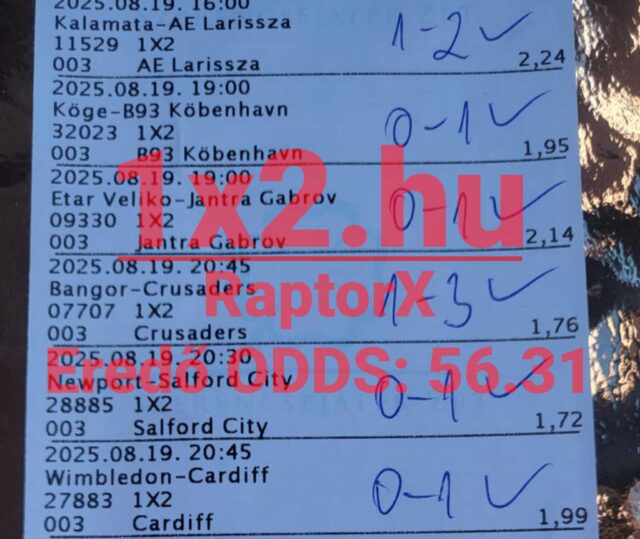 2025.08.19. 16:00
Kalamata-AE Larissza
11529 1X2
003 AE Larissza 2,24
1-2 ✓
2025.08.19. 19:00
Köge-B93 Köbenhavn
32023 1X2
003 B93 Köbenhavn 1,95
0-1 ✓
2025.08.19. 19:00
Etar Veliko-Jantra Gabrov
09330 1X2
003 Jantra Gabrov 2,14
0-1 ✓
2025.08.19. 20:45
Bangor-Crusaders
07707 1X2
003 Crusaders 1,76
1-3 ✓
2025.08.19. 20:30
Newport-Salford City
28885 1X2
003 Salford City 1,72
0-1 ✓
2025.08.19. 20:45
Wimbledon-Cardiff
27883 1X2
003 Cardiff 1,99
0-1 ✓
1x2.hu
RaptorX
Eredő ODDS: 56.31